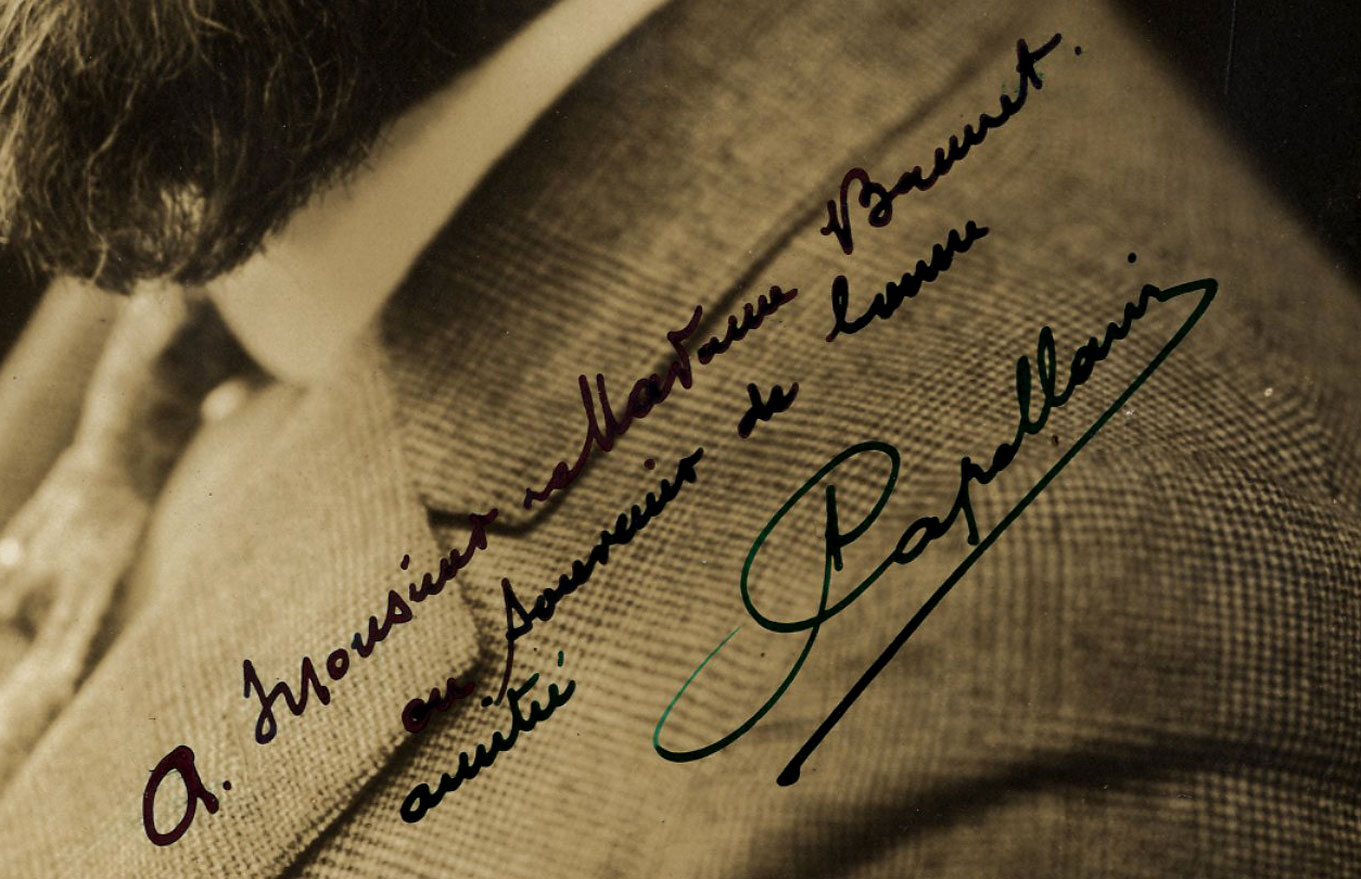 A. Monsieur et Madame
en souvenir de bonne
amitié
Capellani